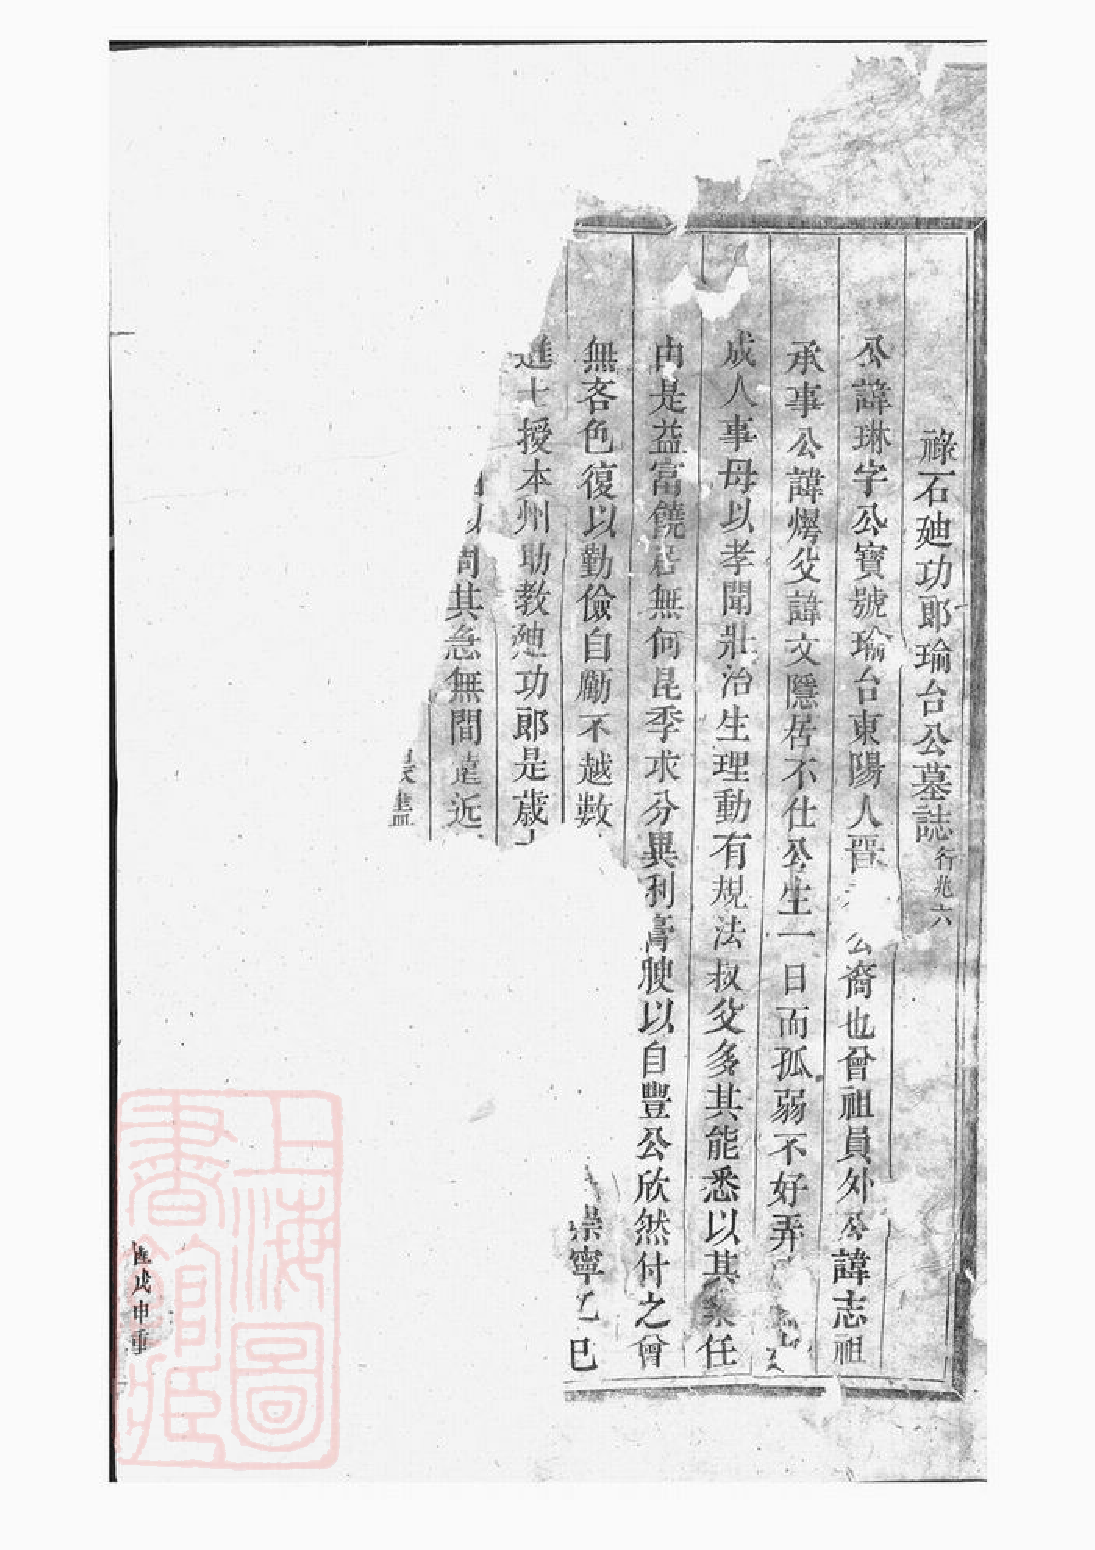 祿石廸功郎瑜台公墓誌行兆六
公諱琳字公寶號瑜台東陽人晉公裔也曾祖員外公諱志祖
承事公諱㷸父諱文隱居不仕公生一日而孤弱不好弄
成人事母以孝聞壯治生理動有規法叔父多其能悉以其業任
由是益富饒居無何昆季求分異利膏腴以自豐公欣然付之曾
無吝色復以勤儉自勵不越數崇寧乙巳
進士授本州助教廸功郎是歲
以周其急無間遠近
戊申重
上海圖書館藏